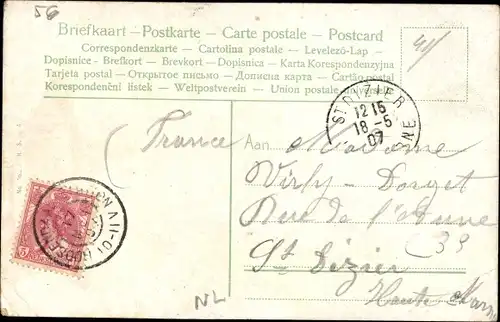 56
Briefkaart — Postkarte — Carte postale — Postcard
Correspondenzkarte — Cartolina postale — Levelezö-Lap —
Dopisnice - Brefkort — Brevkort — Dopisnica — Karta Korespondenzyjna
Tarjeta postal — Открытое письмо — Дописна карта — Cartão postal
Korespondenční listek — Weltpostverein — Union postale universelle
ST DIZIER
12 15
18 - 5
07
NE
(France)
Aan Madame
Virly - Dorget
Rue de l'
39
St Dizier
Haute Mar
5
10-11 V
NL